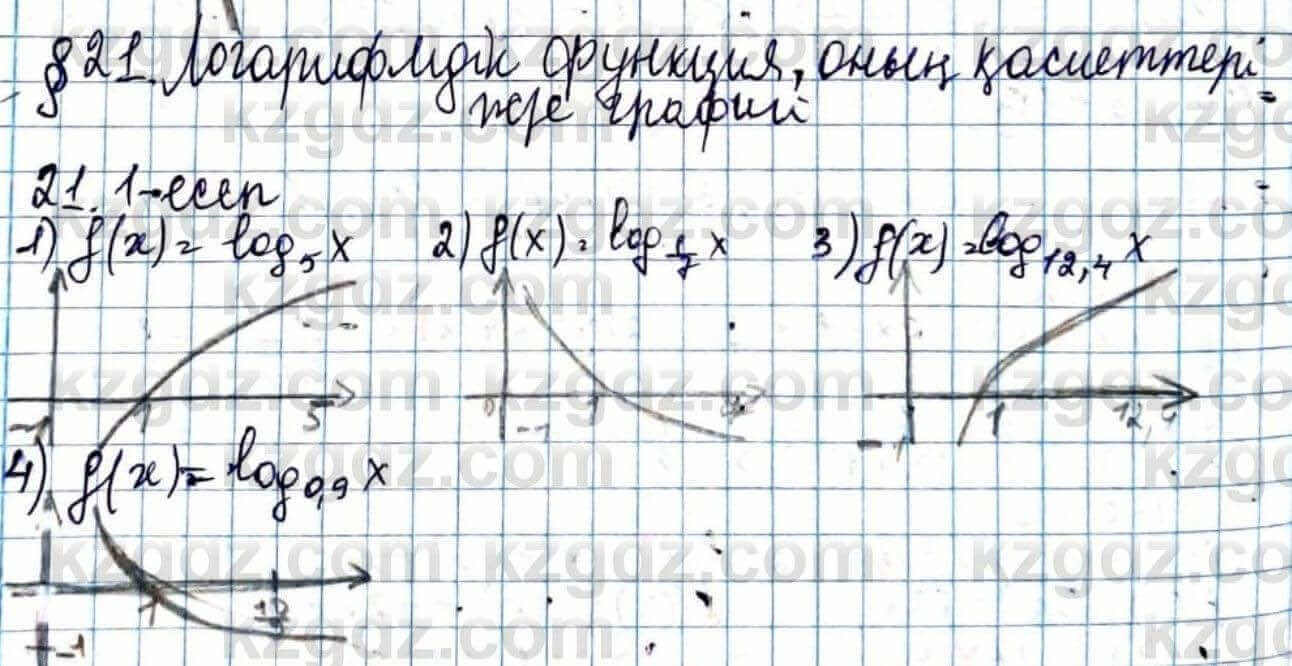 §21. Логарифмдік функция, оның қасиеттері
және графигі
21.1-есеп
1) f(x) = log₅x 2) f(x) = log_{1/7} x 3) f(x) = log_{12,4} x
1 5 -1
0 1 -1
1 12,4 -1
4) f(x) = log_{0,9} x
1 -1
kzgdz.com